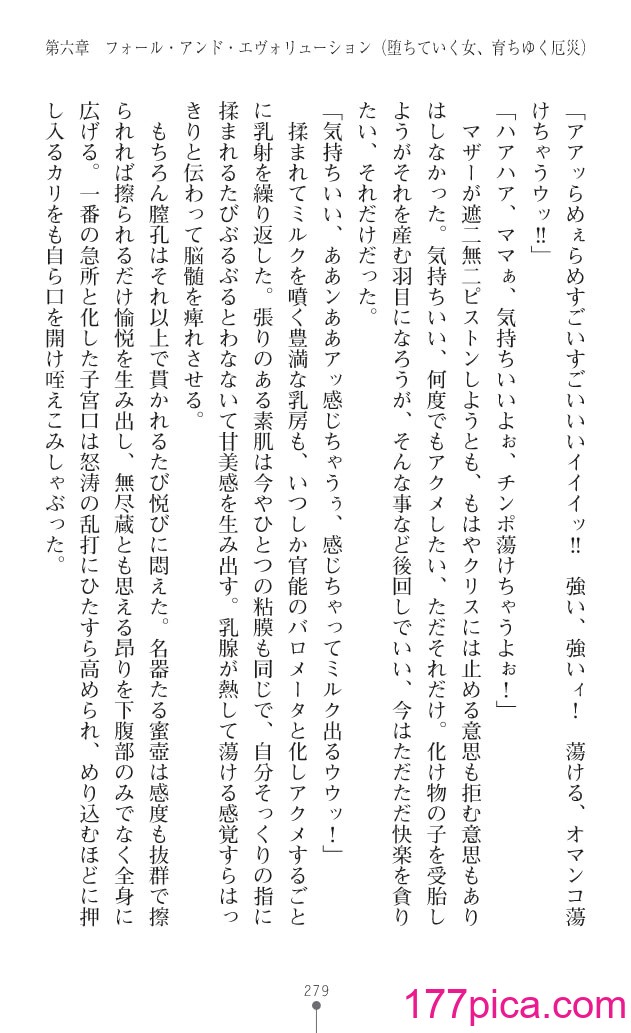 第六章　フォール・アンド・エヴォリューション（堕ちていく女、育ちゆく厄災）
「アアッらめぇらめすごいすごいいいイイイッ!!　強い、強いィ！　蕩ける、オマンコ蕩
けちゃうウッ!!」
「ハアハア、ママぁ、気持ちいいよぉ、チンポ蕩けちゃうよぉ！」
　マザーが遮二無二ピストンしようとも、もはやクリスには止める意思も拒む意思もあり
はしなかった。気持ちいい、何度でもアクメしたい、ただそれだけ。化け物の子を受胎し
ようがそれを産む羽目になろうが、そんな事など後回しでいい、今はただただ快楽を貪り
たい、それだけだった。
「気持ちいい、ああンああアッ感じちゃうぅ、感じちゃってミルク出るウウッ！」
　揉まれてミルクを噴く豊満な乳房も、いつしか官能のバロメータと化しアクメするごと
に乳射を繰り返した。張りのある素肌は今やひとつの粘膜も同じで、自分そっくりの指に
揉まれるたびぶるぶるとわなないて甘美感を生み出す。乳腺が熱して蕩ける感覚すらはっ
きりと伝わって脳髄を痺れさせる。
　もちろん膣孔はそれ以上で貫かれるたび悦びに悶えた。名器たる蜜壺は感度も抜群で擦
られれば擦られるだけ愉悦を生み出し、無尽蔵とも思える昂りを下腹部のみでなく全身に
広げる。一番の急所と化した子宮口は怒涛の乱打にひたすら高められ、めり込むほどに押
し入るカリをも自ら口を開け咥えこみしゃぶった。
279
177pica.com